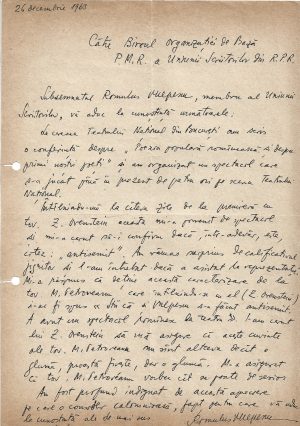 26 decembrie 1963
Către Biroul Organizației de Bază
P.M.R. a Uniunii Scriitorilor din R.P.R.
Subsemnatul Romulus Vulpescu, membru al Uniunii
Scriitorilor, vă aduc la cunoștință următoarele:
La cererea Teatrului Național din București am scris
o conferință despre „Poezia populară românească și despre
primii noștri poeți” și am organizat un spectacol care
s-a jucat până în prezent de patru ori pe scena Teatrului
Național.
Întâlnindu-mă la câteva zile de la premieră cu
tov. Z. Ornstein acesta mi-a pomenit de spectacol
și mi-a cerut să-i confirm dacă, într-adevăr, este
„antisemit”. Am rămas surprins de calificativul
și l-am întrebat dacă a asistat la reprezentație.
M-a răspuns că deține această caracterizare de la
tov. M. Petroveanu care întâlnindu-se cu el (Z. Ornstein)
s-ar fi spus: a Vulpescu s-a făcut antisemit.
A avut un spectacol la teatru. I-am cerut
lui Z. Ornstein să mă asigure că aceste cuvinte
ale tov. M. Petroveanu nu sunt altceva decât o
glumă, proastă, firește, dar o glumă. M-a asigurat
că tov. M. Petroveanu vorbea cât se poate de serios.
Am fost profund indignat de această
pe care o consider calomnioasă, fapt pentru care vă aduc
la cunoștință cele de mai sus.
Romulus Vulpescu